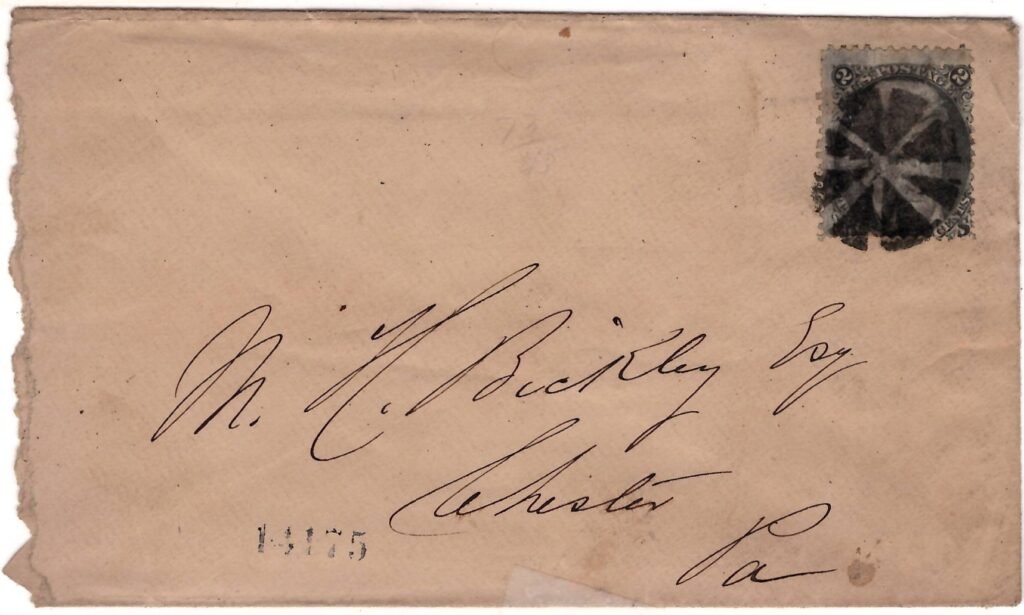 2 U.S. POSTAGE 2
CENTS
M. H. Bickley Esq
Chester
Pa
14175